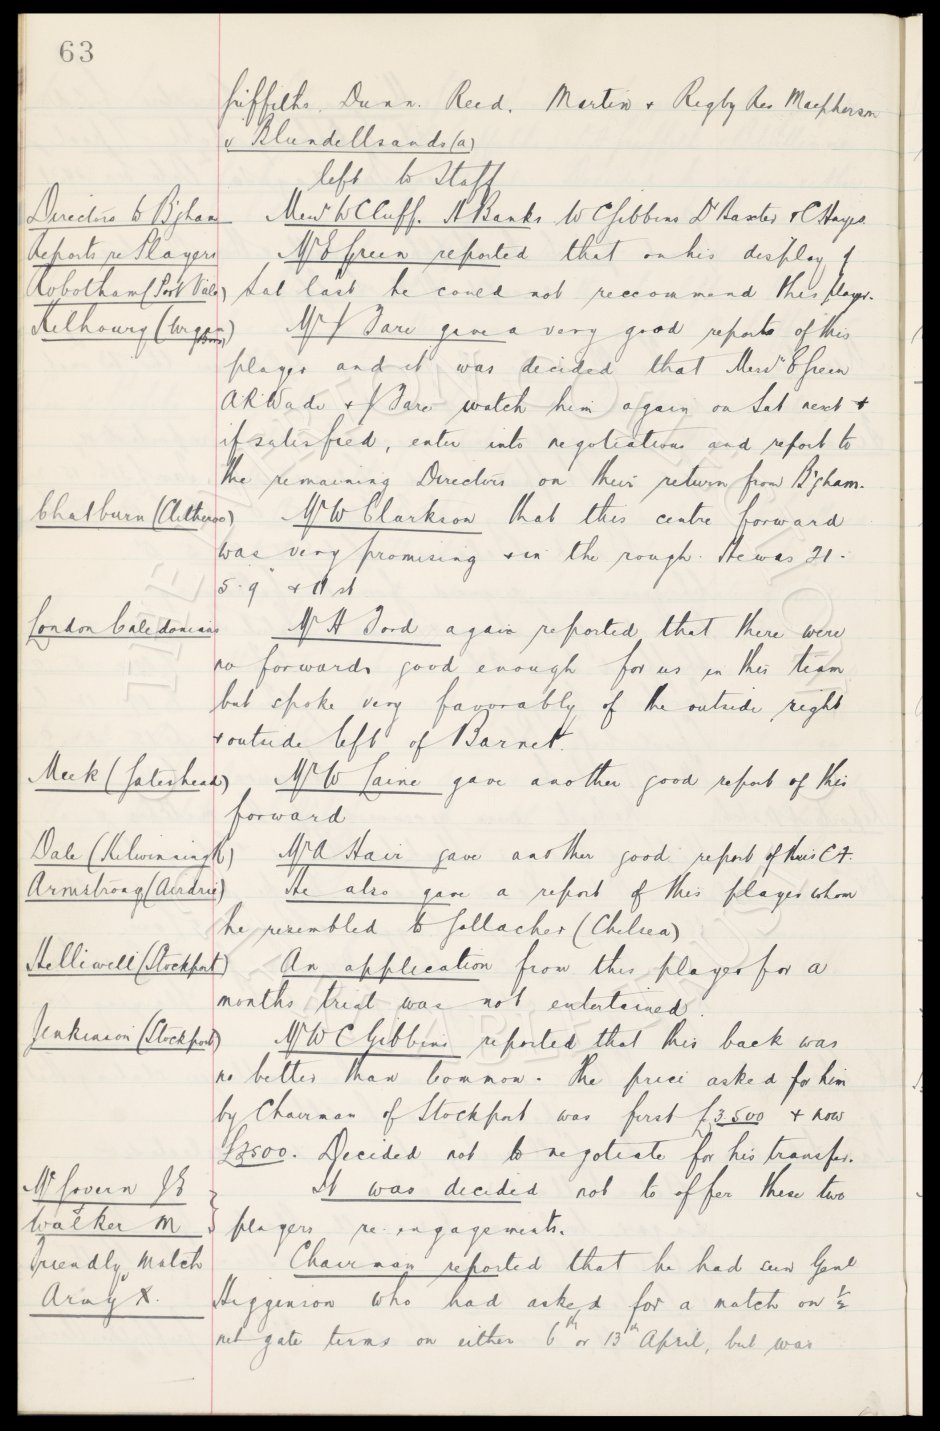 63
Griffiths. Dunn. Reed. Martin + Rigby Res Macpherson
v Blundellsands (a)
left to Staff
Directors to B'gham Messrs W Cluff. A Banks W C Gibbins Dr Baxter & C Hayes
Reports re Players Mr E Green reported that on his display of
Robotham (Port Vale) Sat last he could not reccommend this player.
Kilhourg (Wigan Boro) Mr J Fare gave a very good report of this
player and it was decided that Messrs E Green
A R Wade + J Fare watch him again on Sat next +
if satisfied, enter into negotiations and report to
the remaining Directors on their return from B'gham.
Chatburn (Clitheroe) Mr W Clarkson that this centre forward
was very promising + in the rough. He was 21.
5.9" + 11 st
London Caledonians Mr H Ford again reported that there were
no forwards good enough for us in this team
but spoke very favorably of the outside right
+ outside left of Barnet.
Meek (Gateshead) Mr W Laine gave another good report of this
forward
Dale (Kilwinning R) Mr A Hair gave another good report of this C F.
Armstrong (Airdrie) He also gave a report of this player whom
he resembled to Gallacher (Chelsea)
Helliwell (Stockport) An application from this player for a
months trial was not entertained.
Jenkinson (Stockport) Mr W C Gibbins reported that this back was
no better than Common. The price asked for him
by Chairman of Stockport was first £3500 + now
£2500. Decided not to negotiate for his transfer.
McGovern J E It was decided not to offer these two
Walker M } players re-engagements.
Friendly Match Chairman reported that he had seen Genl
Army X. Higginson who had asked for a match on ½
net gate terms on either 6th or 13th April, but was